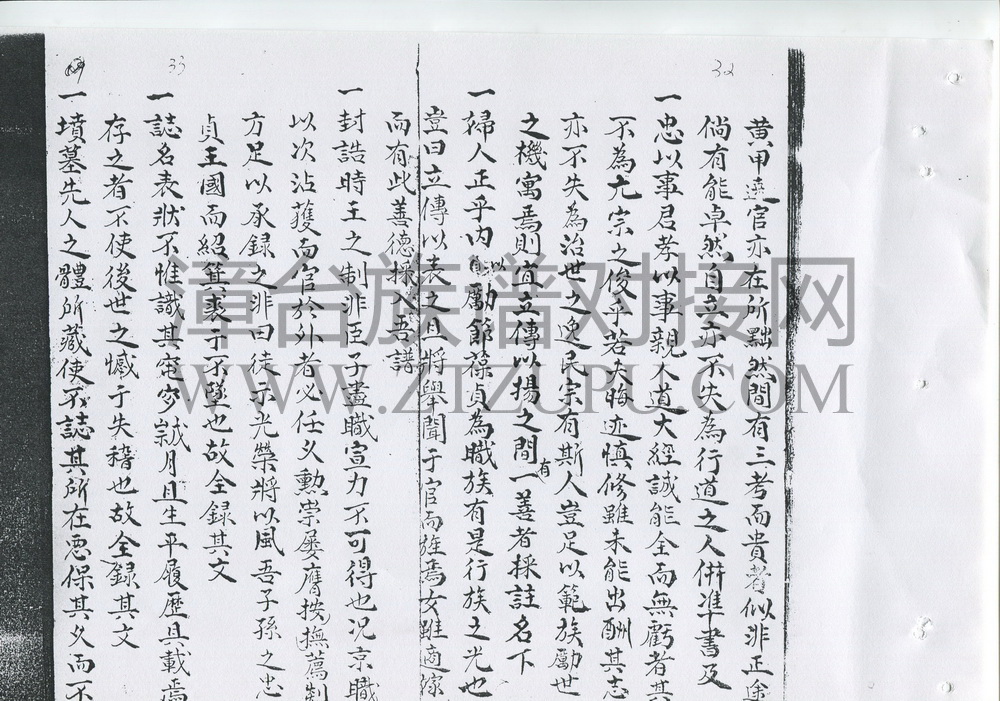 32
黄甲達官亦在所黜然間有三考而貴者似非正途
倘有能卓然自立亦不失為行道之人併准書及
一忠以事君孝以事親人道大經誠能全而無虧者其
不為亢宗之俊乎若夫晦迹慎修雖未能出酬其志
亦不失為治世之逸民宗有斯人豈足以範族勵世
之機寓焉則宜立傳以揚之間有一善者採註名下
一婦人正乎內以勵節葆貞為職族有是行族之光也
豈曰立傳以表之且將舉聞于官而旌焉女雖適嫁
而有此善德採入吾譜
33
一封誥時王之制非臣子盡職宣力不可得也況京職
以次沾獲而官於外者必任久勳崇屡膺按撫薦剡
方足以承録之非曰徒示光榮將以風吾子孫之忠
貞王國而紹箕裘于不墜也故全録其文
一誌名表狀不惟識其窀穸誠月且生平履歷具載焉
存之者不使後世之憾于失稽也故全録其文
一墳墓先人之體所藏使不誌其所在悪保其久而不
漳台族谱对接网
WWW.ZTZUPU.COM